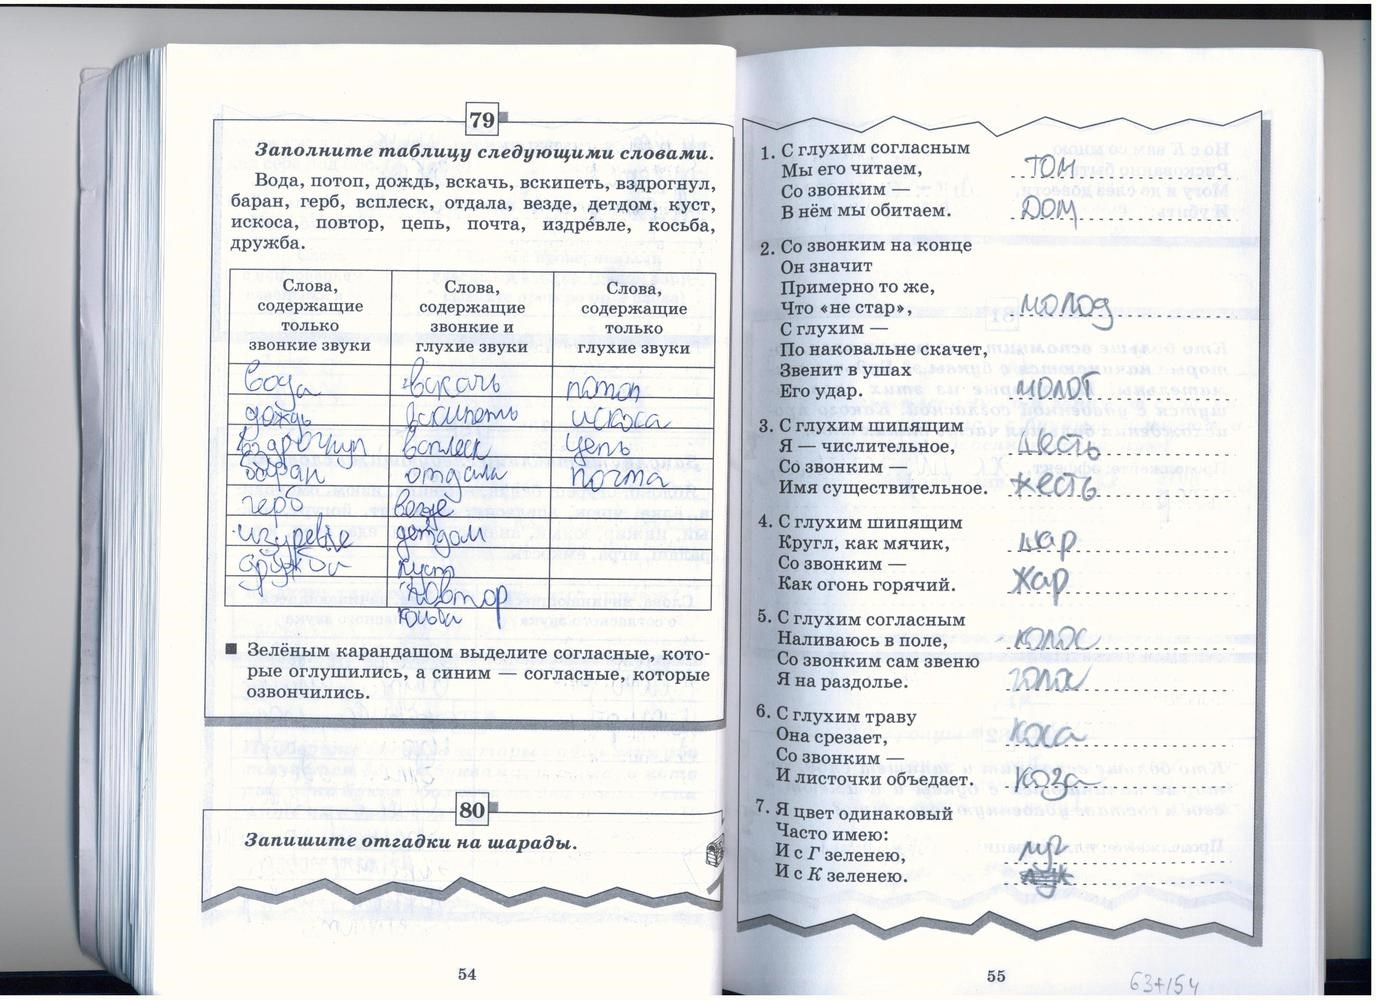 79
Заполните таблицу следующими словами.
Вода, потоп, дождь, вскачь, вскипеть, вздрогнул,
баран, герб, всплеск, отдала, везде, детдом, куст,
искоса, повтор, цепь, почта, издре́вле, косьба,
дружба.
Слова, содержащие только звонкие звуки
Слова, содержащие звонкие и глухие звуки
Слова, содержащие только глухие звуки
вода вскачь потоп
дождь вскипеть искоса
вздрогнул всплеск цепь
баран отдала почта
герб везде
издревле детдом
дружба куст
повтор
косьба
Зелёным карандашом выделите согласные, кото-
рые оглушились, а синим — согласные, которые
озвончились.
80
Запишите отгадки на шарады.
54
1. С глухим согласным
Мы его читаем, том
Со звонким —
В нём мы обитаем. дом
2. Со звонким на конце
Он значит
Примерно то же,
Что «не стар», молод
С глухим —
По наковальне скачет,
Звенит в ушах
Его удар. молот
3. С глухим шипящим
Я — числительное, шесть
Со звонким —
Имя существительное. жесть
4. С глухим шипящим
Кругл, как мячик, шар
Со звонким —
Как огонь горячий. жар
5. С глухим согласным
Наливаюсь в поле, колос
Со звонким сам звеню
Я на раздолье. голос
6. С глухим траву
Она срезает, коса
Со звонким —
И листочки объедает. коза
7. Я цвет одинаковый
Часто имею:
И с Г зеленею, луг
И с К зеленею. лук
55
63+154